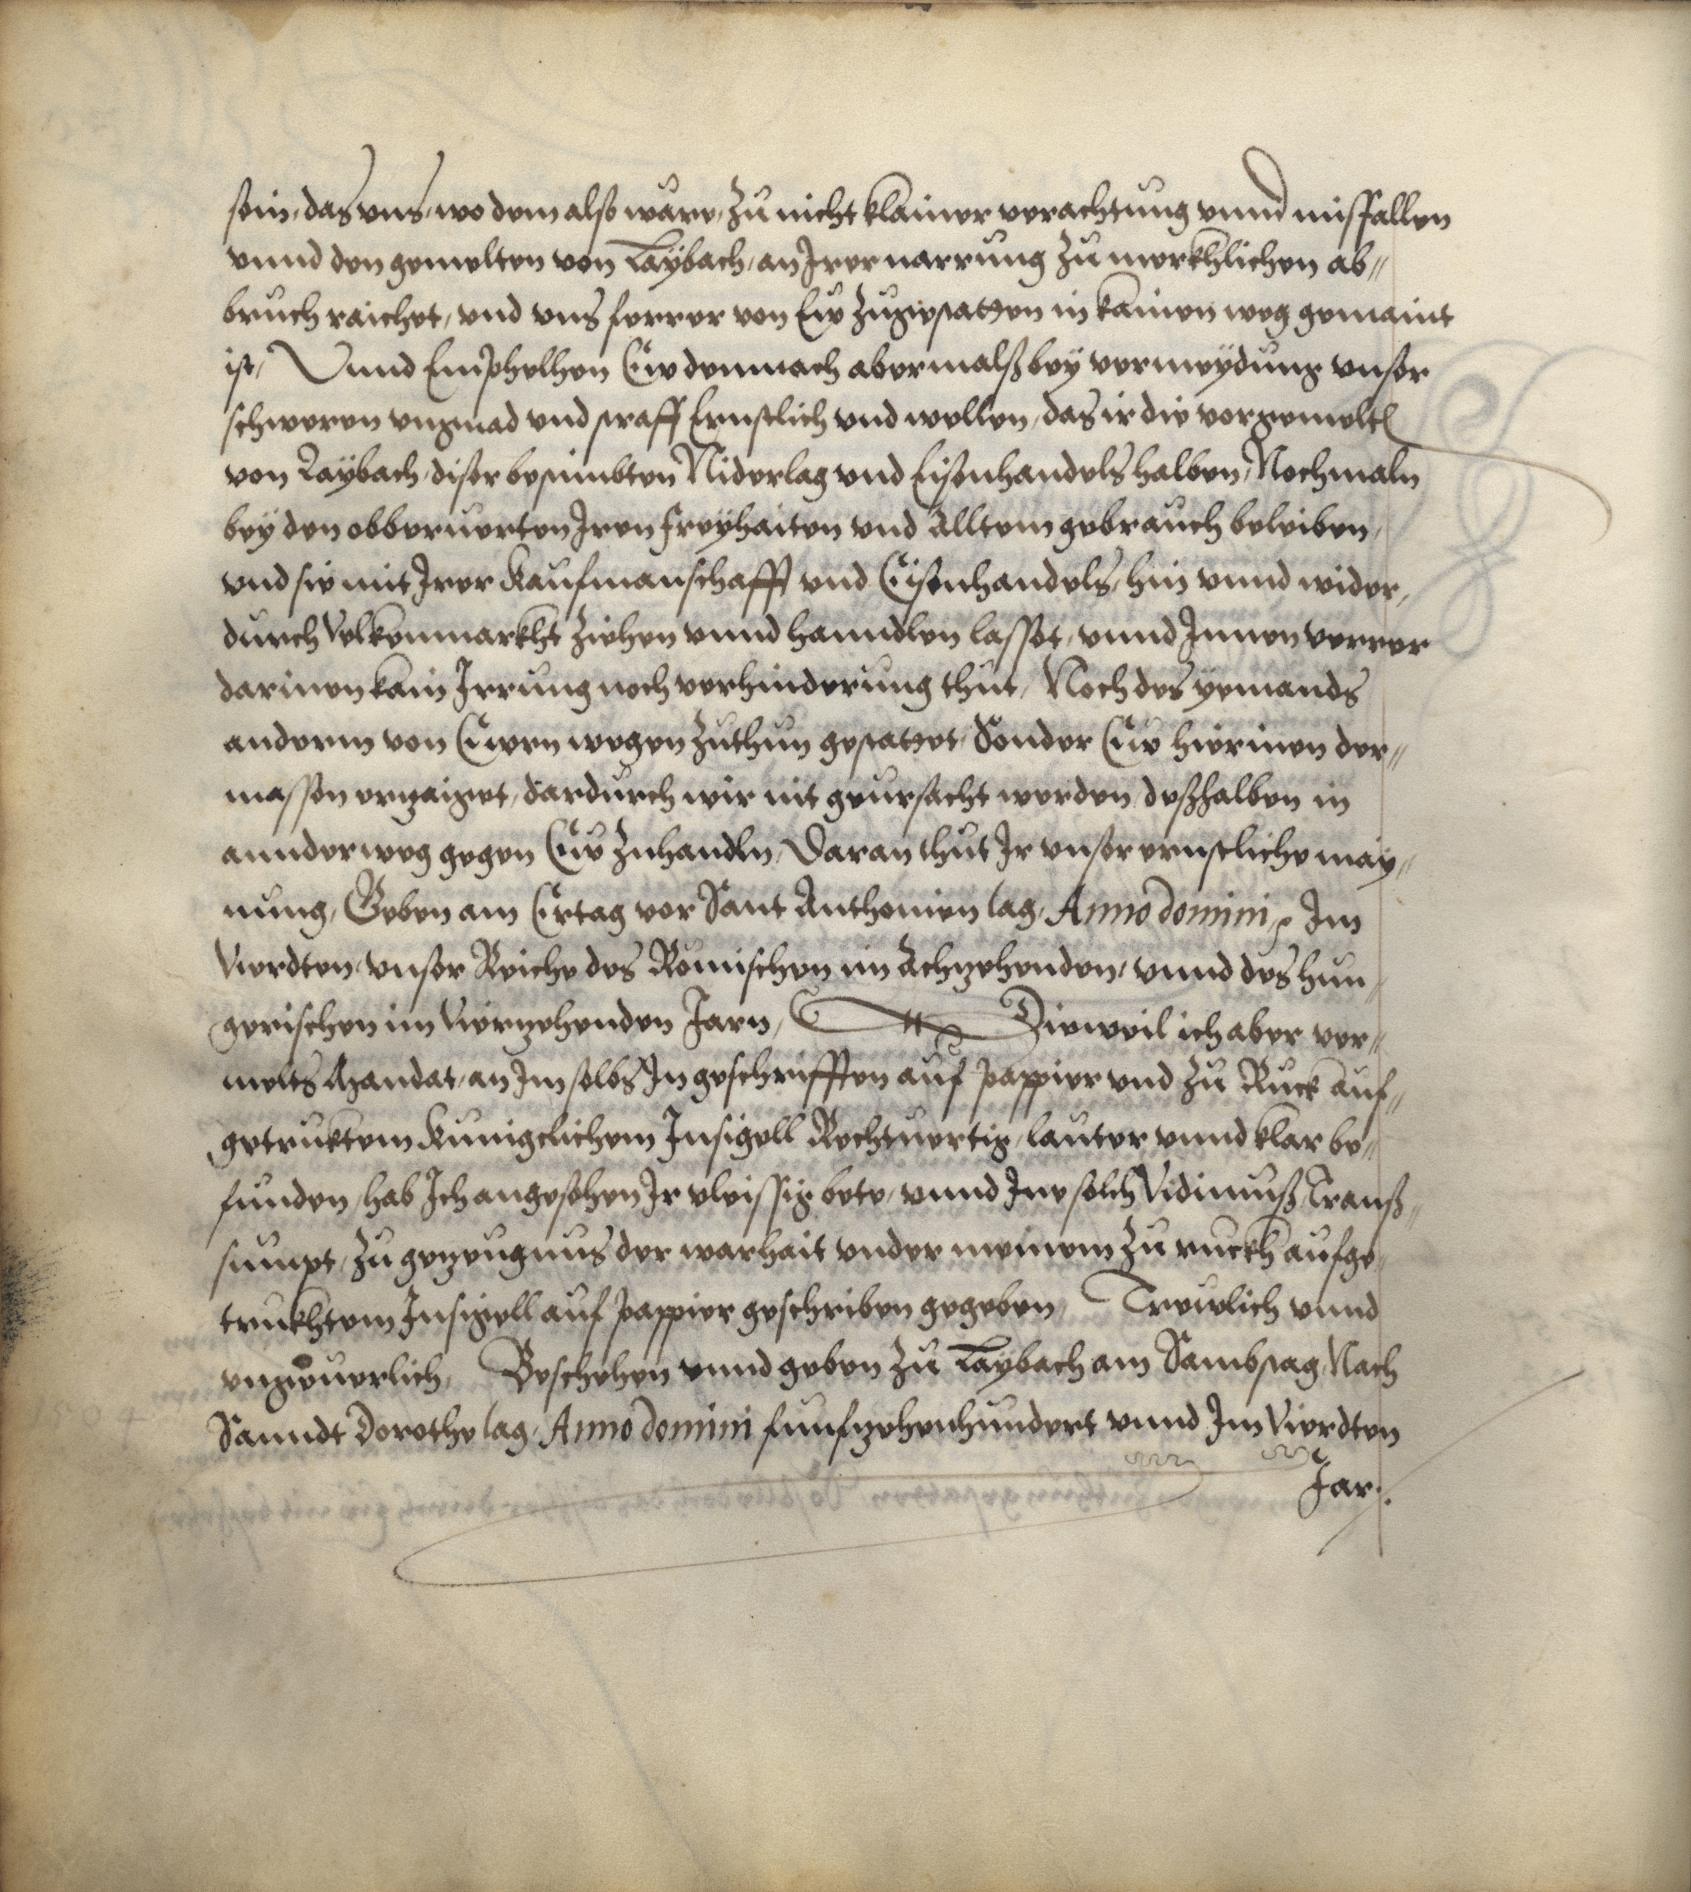 sein, das vns, wo dem also wäre, zu nicht klainer verachtung vnnd misfallen
vnnd den gemelten von Laybach, an Irer narrung zu merkhlichen ab„
bruch raichet, vnd vns ferrer von Eu zugestatten in kainen weg gemaint
ist, Vnnd Emphelhen Eu demnach abermalß bey vermeydung vnser
schweren vngnad vnd straff Ernstlich vnd wellen, das ir die vorgemelten
von Laybach, diser bestimbten Niderlag vnd Eisenhandels halben, Nochmaln
bey den obberuerten Iren freyhaiten vnd Alltem gebrauch beleiben,
vnd sie mit Irer Kaufmanschafft vnd Eisenhandels, hin vnnd wider,
durch Volkenmarkht ziehen vnnd hanndlen lasset, vnnd Innen verrer
darinen kain Irrung noch verhinderung thut, Noch des yemands
anderm von Euren wegen zuthun gestattet, Sonder Eu hierinen der„
massen erzaiget, dardurch wir nit geursacht werden, deßhalben in
annder weg gegen Eu zuhandln, Daran thut Ir vnser ernstliche may„
nung, Geben am Erttag vor Sant Anthonien tag, Anno domini Im
Vierdten, vnser Reiche des Römischen im Achzehenden, vnnd des hun„
gerischen im Vierzehenden Jaren, Dieweil ich aber ver„
melts Mandat, an Im selbs In geschrifften auf pappier vnd zu Ruck auf„
getruktem Kunigclichem Insigell Rechtuertig, lauter vnnd klar be„
funden, hab Ich angesehen Ir vleissig bete, vnnd Ine solch Vidimuß, Tranß„
sumpt, zu gezeugnus der warhait vnder meinem zu ruckh aufge
trukhtem Insigell auf pappier geschriben gegeben, Treulich vnnd
vngeuerlich, Beschehen vnnd geben zu Laybach am Sambstag Nach
Sanndt Dorothe tag, Anno domini funfzehenhundert vnnd Im Vierdten
Jar.